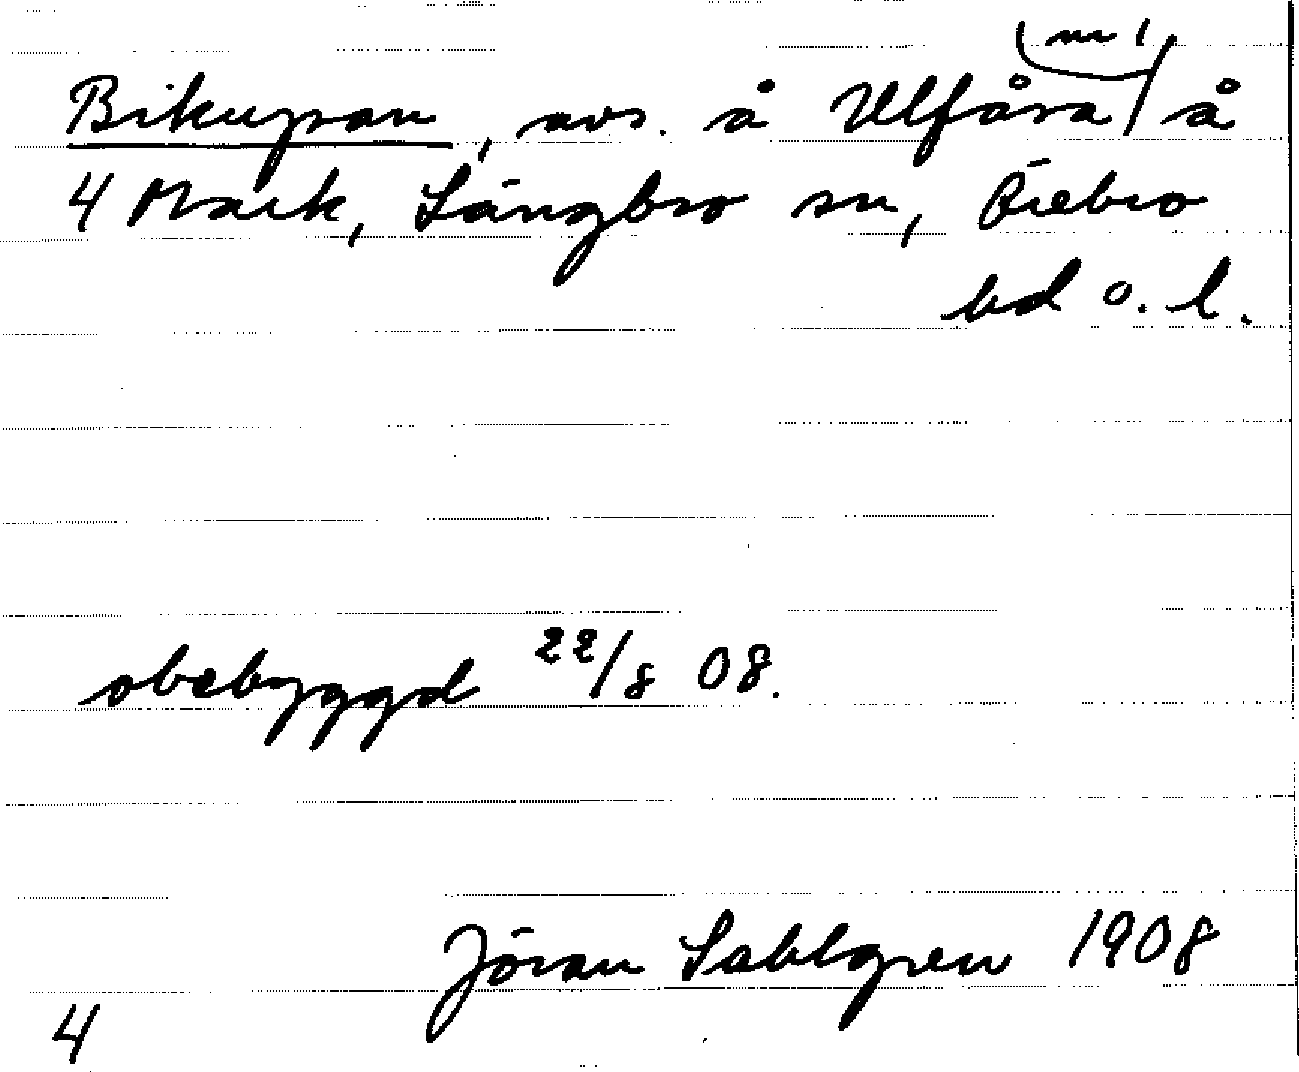 nr 1
Bikupan, avs. å Ulfåra/ å
4 Mark, Längbro sn, Örebro
hd o. l.
obebyggd 22/8 08.
Jöran Sahlgren 1908
4